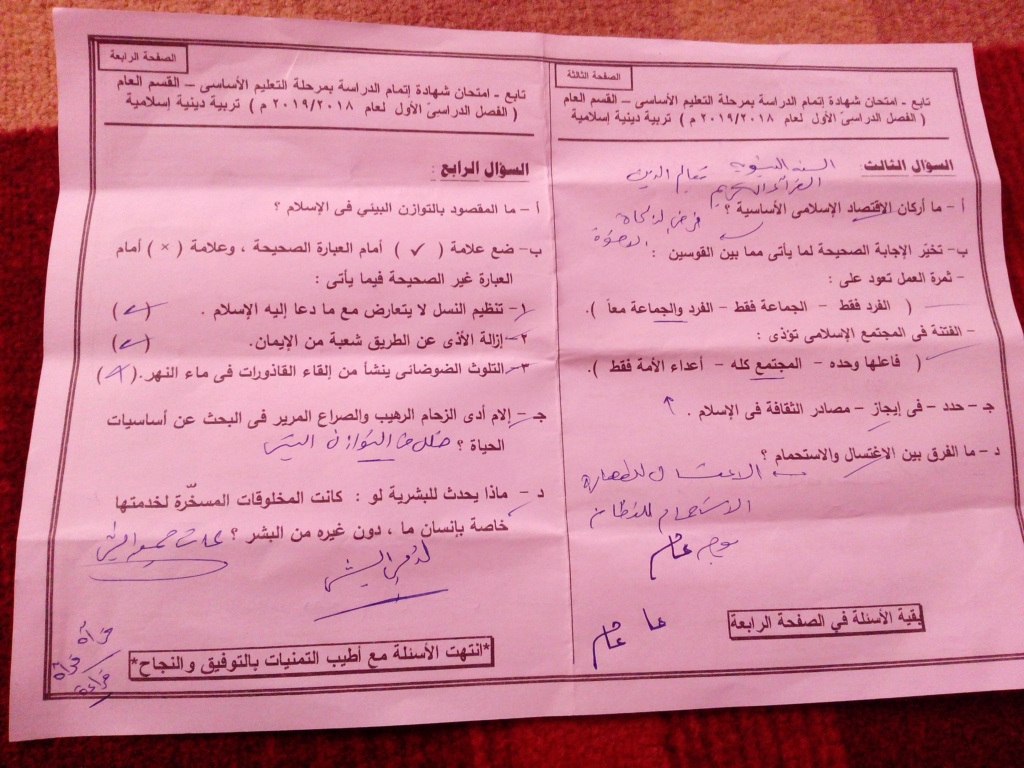 الصفحة الثالثة
تابع - امتحان شهادة إتمام الدراسة بمرحلة التعليم الأساسى – القسم العام
( الفصل الدراسىّ الأول لعام ٢٠١٩/٢٠١٨ م ) تربية دينية إسلامية
السؤال الثالث:
السنة النبوية تعاليم الدين
القرآن الكريم
أ – ما أركان الاقتصاد الإسلامى الأساسية ؟ فرض الزكاة
ب- تخيّر الإجابة الصحيحة لما يأتى مما بين القوسين :
– ثمرة العمل تعود على :
( الفرد فقط – الجماعة فقط – الفرد والجماعة معاً ).
– الفتنة فى المجتمع الإسلامى تؤذى :
( فاعلها وحده – المجتمع كله – أعداء الأمة فقط ).
جـ - حدد – فى إيجاز – مصادر الثقافة فى الإسلام .
د – ما الفرق بين الاغتسال والاستحمام ؟
الاغتسال للطهارة
الاستحمام للنظافة
عام
عام
بقية الأسئلة في الصفحة الرابعة
الصفحة الرابعة
تابع - امتحان شهادة إتمام الدراسة بمرحلة التعليم الأساسى – القسم العام
( الفصل الدراسىّ الأول لعام ٢٠١٩/٢٠١٨ م ) تربية دينية إسلامية
السؤال الرابع :
أ – ما المقصود بالتوازن البيئي فى الإسلام ؟
ب- ضع علامة ( ✓ ) أمام العبارة الصحيحة ، وعلامة ( × ) أمام
العبارة غير الصحيحة فيما يأتى :
١- تنظيم النسل لا يتعارض مع ما دعا إليه الإسلام . ( ✓ )
٢- إزالة الأذى عن الطريق شعبة من الإيمان. ( ✓ )
٣- التلوث الضوضائى ينشأ من إلقاء القاذورات فى ماء النهر. ( × )
جـ - إلام أدى الزحام الرهيب والصراع المرير فى البحث عن أساسيات
الحياة ؟
د - ماذا يحدث للبشرية لو : كانت المخلوقات المسخّرة لخدمتها
خاصة بإنسان ما ، دون غيره من البشر ؟
*انتهت الأسئلة مع أطيب التمنيات بالتوفيق والنجاح*